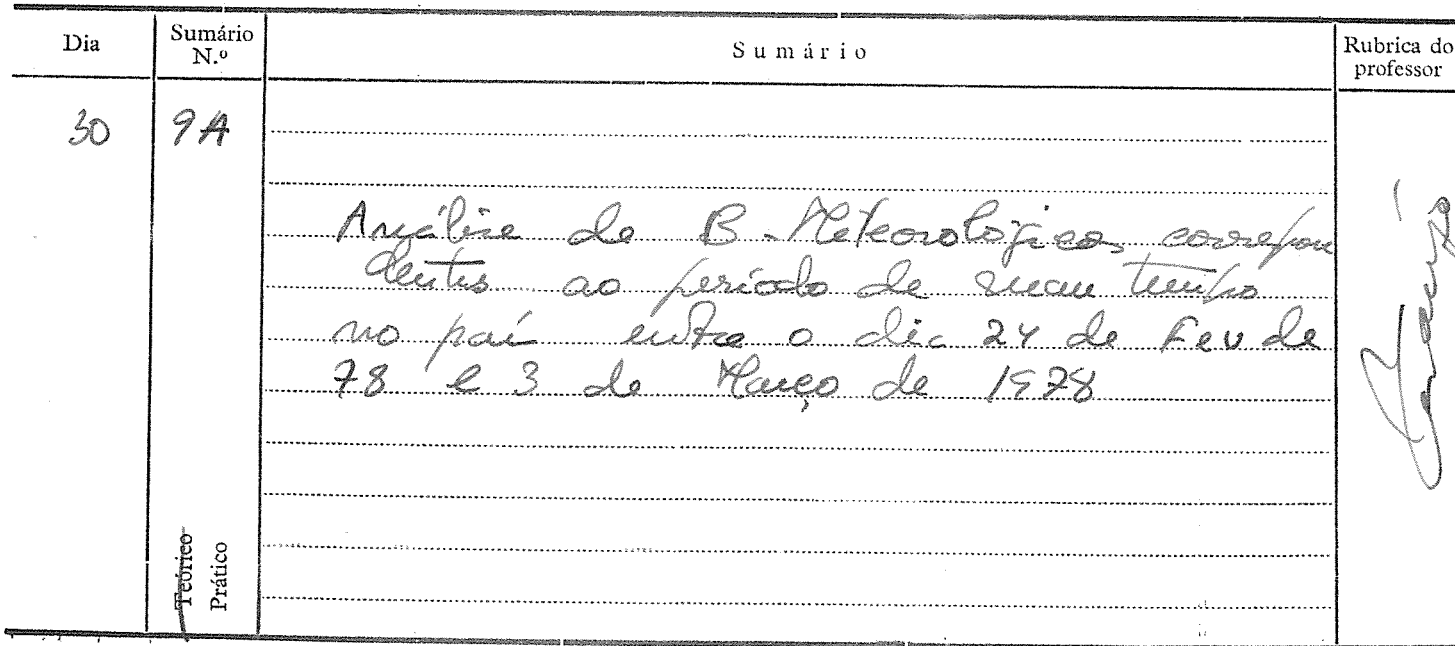 Dia
Sumário N.º
Sumário
Rubrica do professor
30
9A
Análise de B. Meteorológicos correspon
dentes ao período de mau tempo
no país entre o dia 24 de Fev de
78 e 3 de Março de 1978
Teórico
Prático